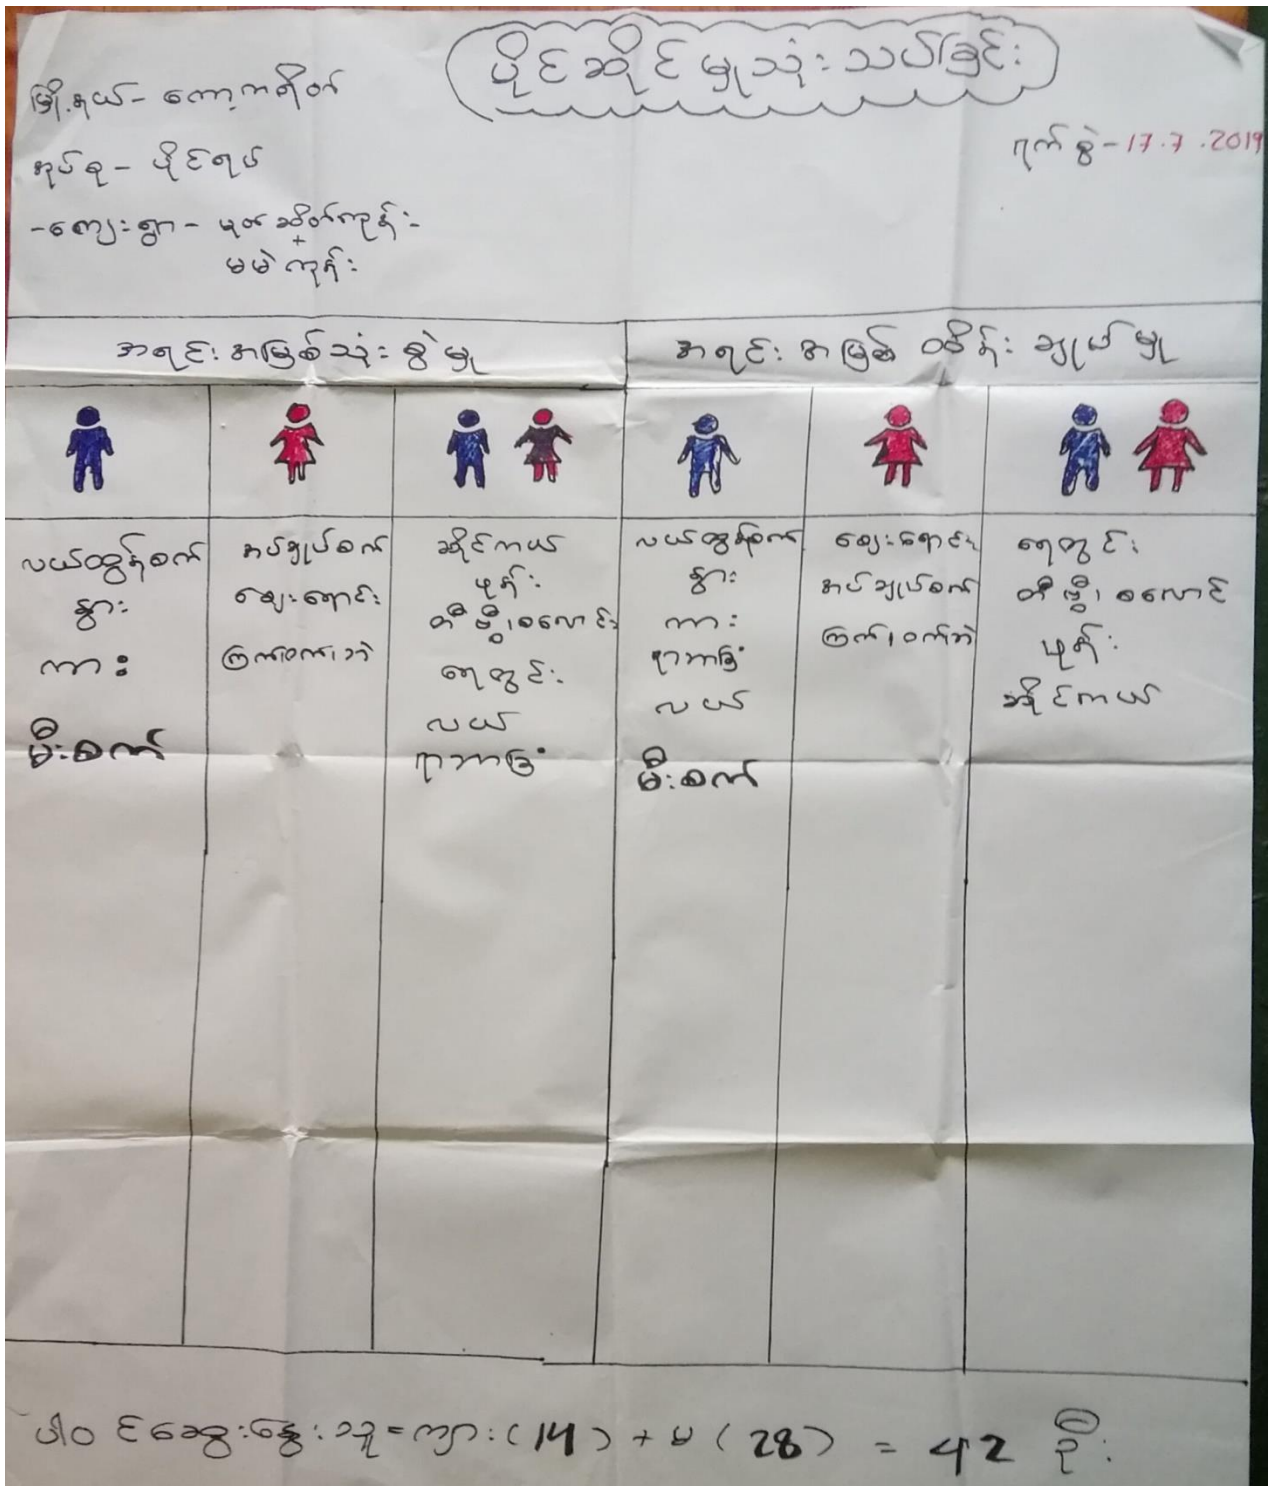 ပိုင်ဆိုင်မှုသုံးသပ်ခြင်း
မြို့နယ် - ကော့ကရိတ်
ရက်စွဲ - 17.7.2019
အုပ်စု - ပိုင်ရပ်
- ကျေးရွာ -
+
မမဲကုန်း
အရင်းအမြစ်သုံးစွဲမှု
အရင်းအမြစ် ထိန်းချုပ်မှု
လယ်ထွန်စက်
နွား
ကား
မီးစက်
အပ်ချုပ်စက်
ဈေးရောင်း
ကြက်၊ဝက်၊ဘဲ
ဆိုင်ကယ်
ဖုန်း
တီဗွီ၊စလောင်း
ရေတွင်း
လယ်
ရာဘာခြံ
လယ်ထွန်စက်
နွား
ကား
ရာဘာခြံ
လယ်
မီးစက်
ဈေးရောင်း
အပ်ချုပ်စက်
ကြက်၊ဝက်ဘဲ
ရေတွင်း
တီဗွီ၊စလောင်
ဖုန်း
ဆိုင်ကယ်
ပါဝင်ဆွေးနွေးသူ = ကျား (14) + မ (28) = 42 ဦး